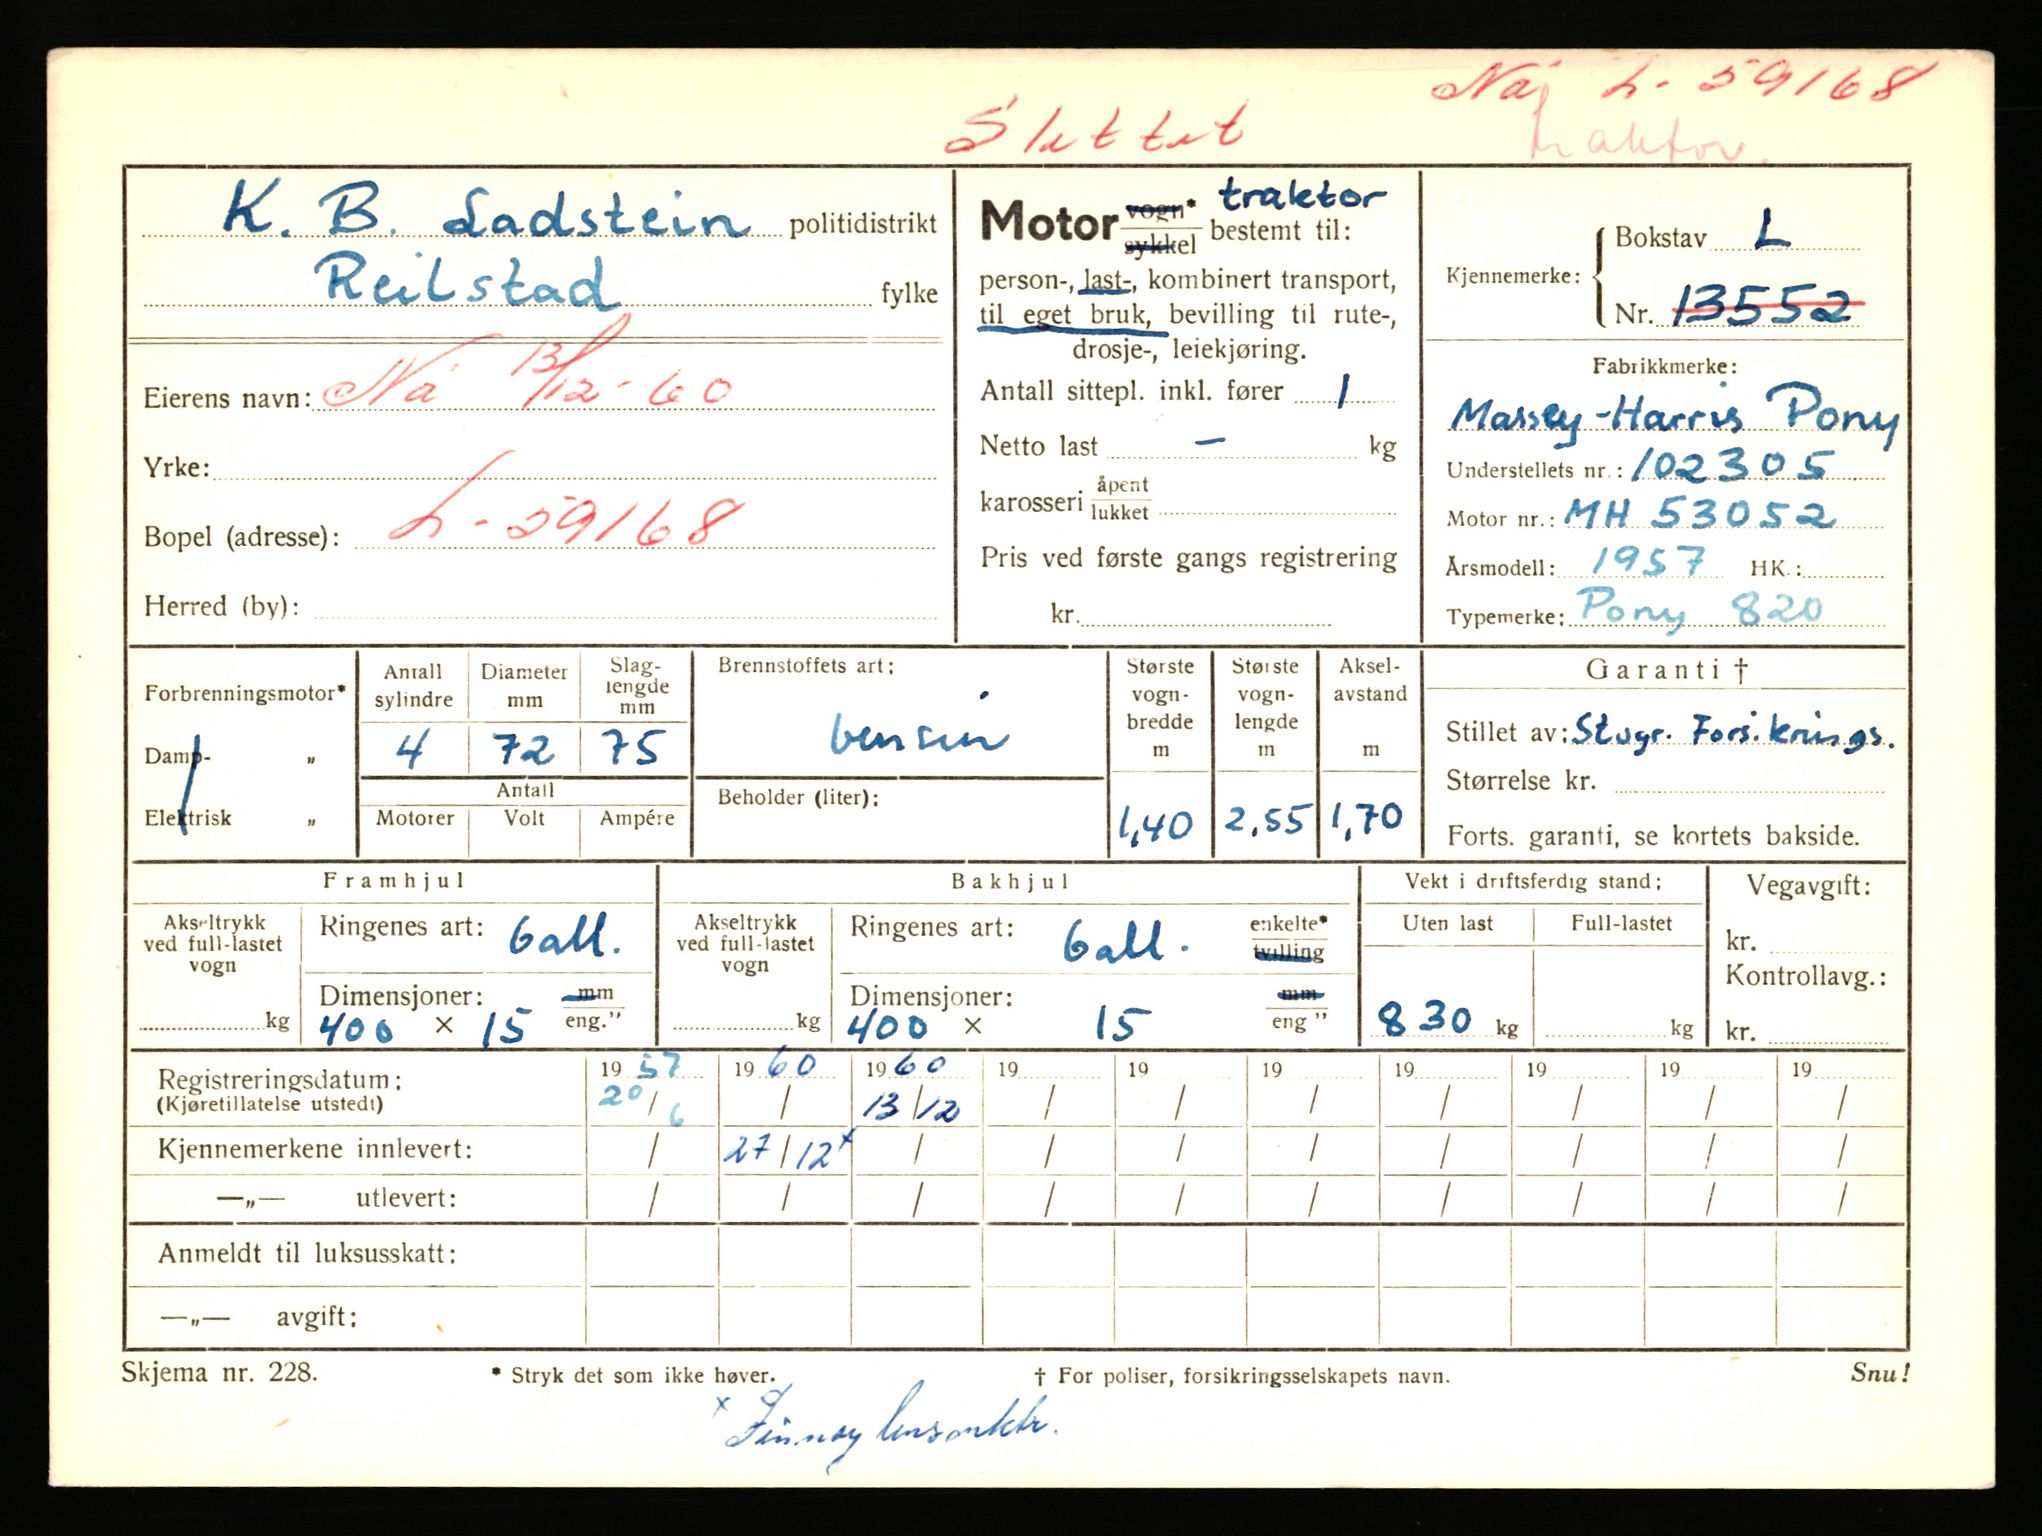 Nå L-59168
traktor.
Slettet
K. B. Ladstein politidistrikt
Reilstad fylke
Eierens navn: Nå 13/12-60
Yrke:
Bopel (adresse): L-59168
Herred (by):
Motor vogn* traktor
sykkel bestemt til:
person-, last-, kombinert transport,
til eget bruk, bevilling til rute-,
drosje-, leiekjøring.
Antall sittepl. inkl. fører 1
Netto last – kg
karosseri åpent
lukket
Pris ved første gangs registrering
kr.
Kjennemerke: Bokstav L
Nr. 13552
Fabrikkmerke:
Massey-Harris Pony
Understellets nr.: 102305
Motor nr.: MH 53052
Årsmodell: 1957 HK.:
Typemerke: Pony 820
Forbrenningsmotor*
Damp- „
Elektrisk „
Antall sylindre
4
Diameter mm
72
Slag-lengde mm
75
Antall
Motorer Volt Ampére
Brennstoffets art:
bensin
Beholder (liter):
Største vogn-bredde m
1,40
Største vogn-lengde m
2,55
Aksel-avstand m
1,70
Garanti †
Stillet av: Stvgr. Forsikrings.
Størrelse kr.
Forts. garanti, se kortets bakside.
Framhjul
Akseltrykk
ved full-lastet
vogn
kg
Ringenes art: ball.
Dimensjoner: mm
400 × 15 eng."
Bakhjul
Akseltrykk
ved full-lastet
vogn
kg
Ringenes art: ball. enkelte*
tvilling
Dimensjoner: mm
400 × 15 eng "
Vekt i driftsferdig stand:
Uten last Full-lastet
830 kg kg
Vegavgift:
kr.
Kontrollavg.:
kr.
Registreringsdatum: 19 57 19 60 19 60 19 19 19 19 19 19 19
(Kjøretillatelse utstedt) 20/6 / 13/12 / / / / / / /
Kjennemerkene innlevert: / 27/12x / / / / / / / /
—„— utlevert: / / / / / / / / / /
Anmeldt til luksusskatt:
—„— avgift:
Skjema nr. 228. * Stryk det som ikke høver. † For poliser, forsikringsselskapets navn. Snu!
x Finnøy